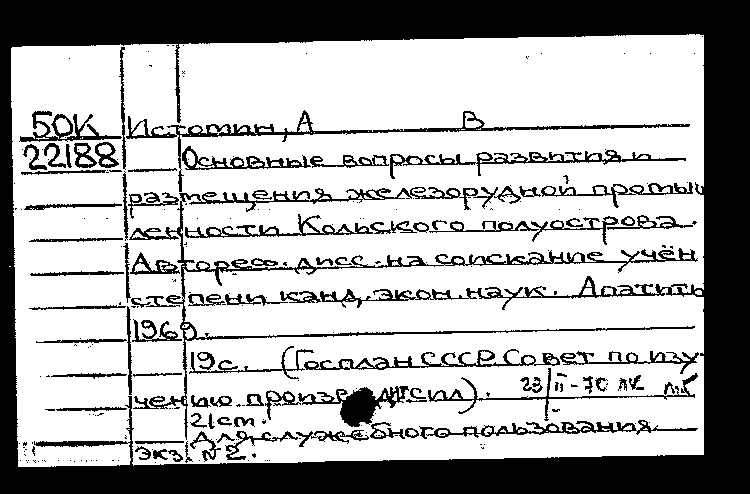 50К Истомин, А В
22188 Основные вопросы развития и
размещения железорудной промыш
ленности Кольского полуострова.
Автореф. дисс. на соискание учён.
степени канд. экон. наук. Апатиты
1969.
19с. (Госплан СССР. Совет по изу-
чению произв. сил). 23/II-70 ЛК
21cm.
Для служебного пользования
экз. №2.